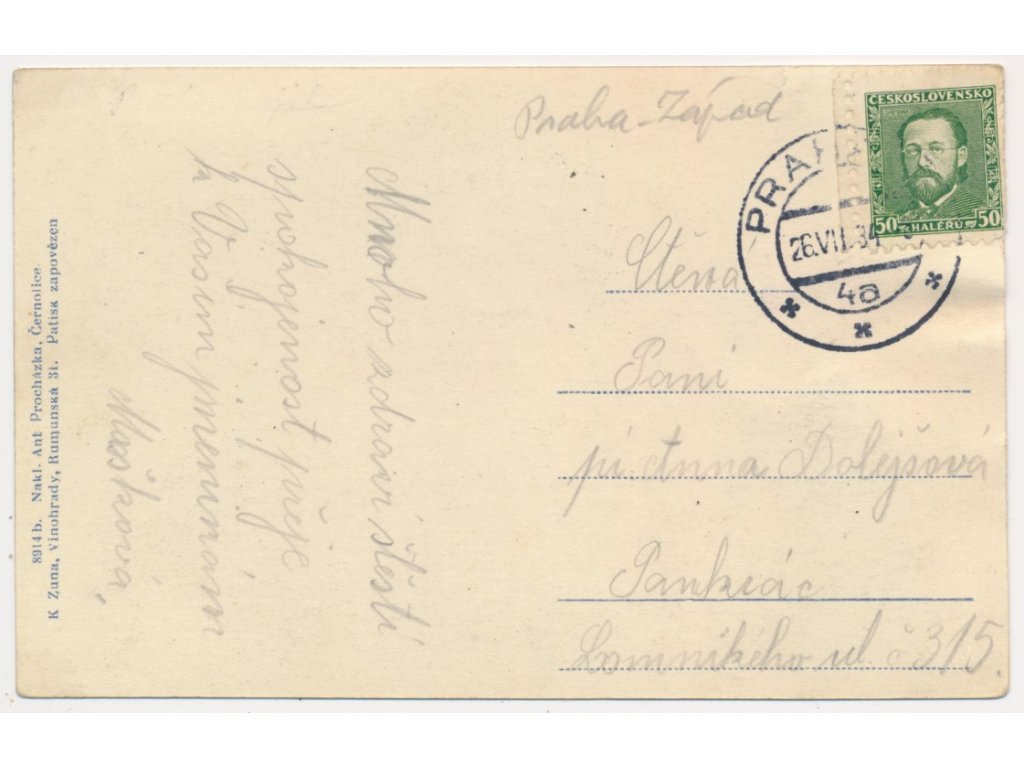 Praha-Západ
ČESKOSLOVENSKO
50 HALÉŘŮ 50
PRAHA
26.VII.34
4a
Ctěná
Paní
pí. Anna Dolejšová
Pankrác
Lomnického ul. č 315.
Mnoho zdraví štěstí
spohojenost přeje
k Vašim jmeninám
Mašková,
8914 b. Nakl. Ant Procházka, Černolice.
K Zuna, Vinohrady, Rumunská 31. Patisk zapovězen